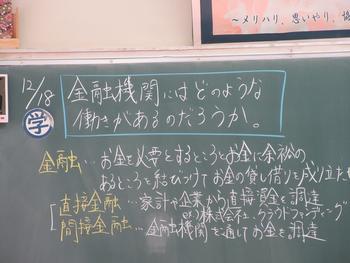 ～メリハリ、思いやり、
12/18
金融機関にはどのような
働きがあるのだろうか。
学
金融…お金を必要とするところとお金に余裕の
あるところを結びつけてお金の貸し借りを成り立たせ
直接金融…家計や企業から直接資金を調達
株式会社、クラウドファンディング
間接金融…金融機関を通してお金を調達